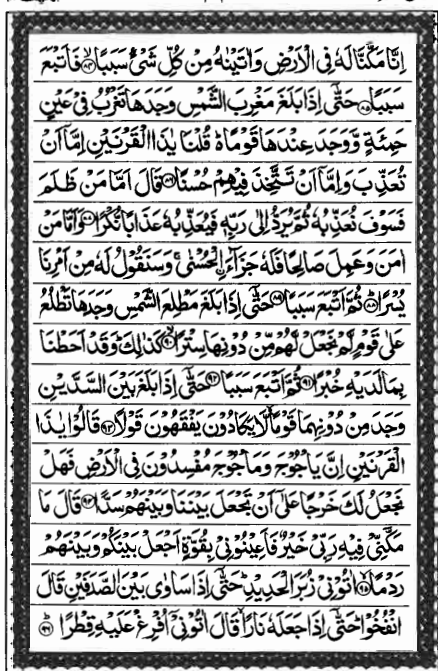 اِنَّا مَكَّنَّا لَهٗ فِی الْاَرْضِ وَاٰتَیْنٰهُ مِنْ كُلِّ شَیْءٍ سَبَبًا ﴿۸۴﴾ فَاَتْبَعَ
سَبَبًا ﴿۸۵﴾ حَتّٰۤی اِذَا بَلَغَ مَغْرِبَ الشَّمْسِ وَجَدَهَا تَغْرُبُ فِیْ عَیْنٍ
حَمِئَةٍ وَّوَجَدَ عِنْدَهَا قَوْمًا ؕ۬ قُلْنَا یٰذَا الْقَرْنَیْنِ اِمَّاۤ اَنْ
تُعَذِّبَ وَاِمَّاۤ اَنْ تَتَّخِذَ فِیْهِمْ حُسْنًا ﴿۸۶﴾ قَالَ اَمَّا مَنْ ظَلَمَ
فَسَوْفَ نُعَذِّبُهٗ ثُمَّ یُرَدُّ اِلٰی رَبِّهٖ فَیُعَذِّبُهٗ عَذَابًا نُّكْرًا ﴿۸۷﴾ وَاَمَّا مَنْ
اٰمَنَ وَعَمِلَ صَالِحًا فَلَهٗ جَزَآءَ ا۟لْحُسْنٰی ۚ وَسَنَقُوْلُ لَهٗ مِنْ اَمْرِنَا
یُسْرًا ﴿۸۸﴾ ثُمَّ اَتْبَعَ سَبَبًا ﴿۸۹﴾ حَتّٰۤی اِذَا بَلَغَ مَطْلِعَ الشَّمْسِ وَجَدَهَا تَطْلُعُ
عَلٰی قَوْمٍ لَّمْ نَجْعَلْ لَّهُمْ مِّنْ دُوْنِهَا سِتْرًا ﴿۹۰﴾ كَذٰلِكَ ؕ وَقَدْ اَحَطْنَا
بِمَا لَدَیْهِ خُبْرًا ﴿۹۱﴾ ثُمَّ اَتْبَعَ سَبَبًا ﴿۹۲﴾ حَتّٰۤی اِذَا بَلَغَ بَیْنَ السَّدَّیْنِ
وَجَدَ مِنْ دُوْنِهِمَا قَوْمًا ۙ لَّا یَكَادُوْنَ یَفْقَهُوْنَ قَوْلًا ﴿۹۳﴾ قَالُوْا یٰذَا
الْقَرْنَیْنِ اِنَّ یَاْجُوْجَ وَمَاْجُوْجَ مُفْسِدُوْنَ فِی الْاَرْضِ فَهَلْ
نَجْعَلُ لَكَ خَرْجًا عَلٰۤی اَنْ تَجْعَلَ بَیْنَنَا وَبَیْنَهُمْ سَدًّا ﴿۹۴﴾ قَالَ مَا
مَكَّنِّیْ فِیْهِ رَبِّیْ خَیْرٌ فَاَعِیْنُوْنِیْ بِقُوَّةٍ اَجْعَلْ بَیْنَكُمْ وَبَیْنَهُمْ
رَدْمًا ﴿۹۵﴾ اٰتُوْنِیْ زُبَرَ الْحَدِیْدِ ؕ حَتّٰۤی اِذَا سَاوٰی بَیْنَ الصَّدَفَیْنِ قَالَ
انْفُخُوْا ؕ حَتّٰۤی اِذَا جَعَلَهٗ نَارًا ۙ قَالَ اٰتُوْنِیْۤ اُفْرِغْ عَلَیْهِ قِطْرًا ﴿۹۶﴾